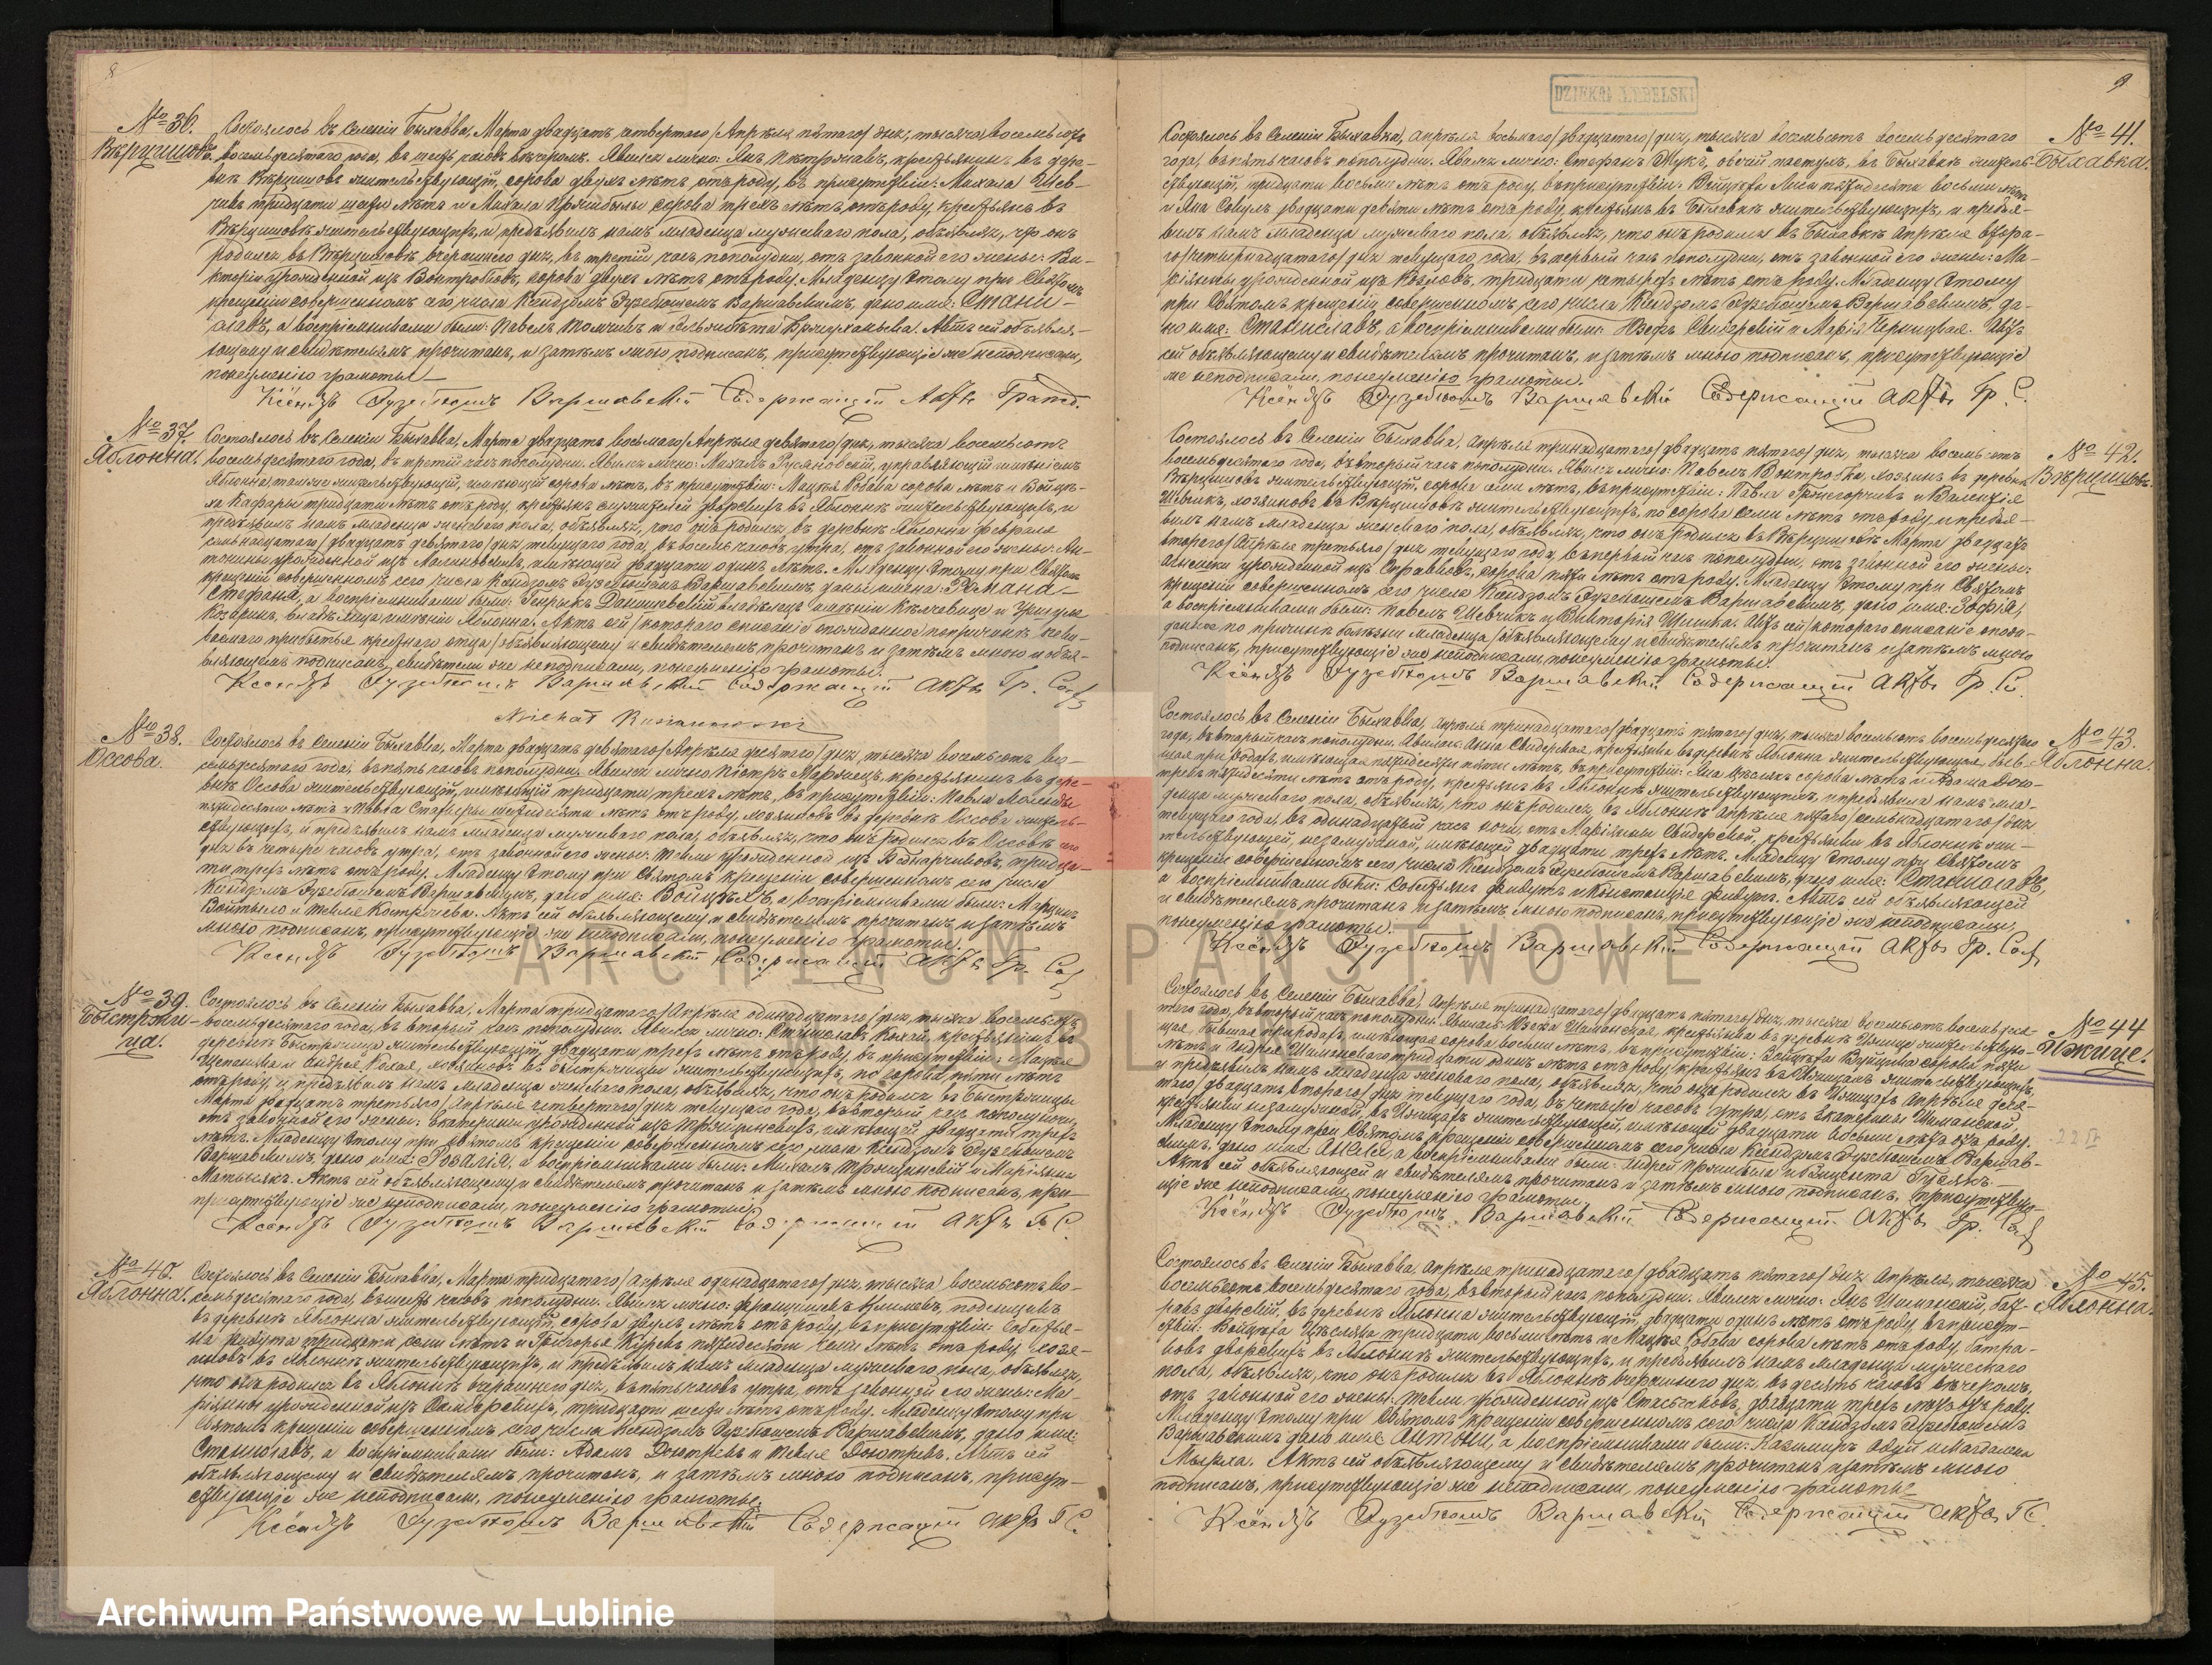 8
№ 36.
Вѣрцишовъ.
Состоялось въ Селеніи Быхавка, Марта двадцать четвертаго/Апрѣля пятаго/дня, тысяча восемьсотъ
восемьдесятаго года, въ шесть часовъ вечеромъ. Явился лично: Янъ Пѣтржакъ, крестьянинъ въ дере-
внѣ Вѣрцишовъ жительствующій, сорока двухъ лѣтъ отъ роду, въ присутствіи: Михала Шев-
чика тридцати шести лѣтъ и Михала сорока трехъ лѣтъ отъ роду, крестьянъ въ
Вѣрцишовѣ жительствующихъ, и предъявилъ намъ младенца мужескаго пола, объявляя, что онъ
родился въ Вѣрцишовѣ вчерашняго дня, въ третій часъ пополудни, отъ законной его жены: Ви-
кторіи урожденной изъ Вонтробовъ, сорока двухъ лѣтъ отъ роду. Младенцу этому при Святомъ
крещеніи совершенномъ сего числа Ксендзомъ Эузебіюшемъ Варшавскимъ, дано имя: Стани-
славъ, а воспріемниками были: Павелъ и Эльжбѣта Актъ сей объявля-
ющему и свидѣтелямъ прочитанъ, и затѣмъ мною подписанъ, присутствующіе же неподписали,
понеумѣнію грамоты.
Ксёндзъ Эузебіюшъ Варшавскій Содержащій Акты Гражд.
№ 37.
Яблонна.
Состоялось въ Селеніи Быхавка, Марта двадцать восьмаго/Апрѣля девятаго/дня, тысяча восемьсотъ
восемьдесятаго года, въ третій часъ пополудни. Явился лично: Михалъ Русяновскій, управляющій имѣніемъ
Яблонна тамже жительствующій, имѣющій сорокъ лѣтъ, въ присутствіи: Мацѣя Робака сорока лѣтъ и Войцѣ-
ха Кафары тридцати лѣтъ отъ роду, крестьянъ служителей дворскихъ въ Яблоннѣ жительствующихъ, и
предъявилъ намъ младенца женскаго пола, объявляя, что она родилась въ деревнѣ Яблонна Февраля
семьнадцатаго/двадцать девятаго/дня, текущаго года, въ восемь часовъ утра, отъ законной его жены: Ан-
тонины урожденной изъ Малиновскихъ, имѣющей двадцати одинъ лѣтъ. Младенцу этому при Святомъ
крещеніи совершенномъ сего числа Ксендзомъ Эузебіюшемъ Варшавскимъ, даны имена: Романа-
Стефанія, а воспріемниками были: Генрыкъ владѣлецъ имѣнія и Уршуля
Козерикъ, владѣлица имѣнія Яблонна. Актъ сей/котораго списаніе опожданное попричинѣ неви-
воемаго прибытья крестнаго отца/объявляющему и свидѣтелямъ прочитанъ и затѣмъ мною и объя-
вляющимъ подписанъ, свидѣтели же неподписали, понеумѣнію грамоты.
Ксёндзъ Эузебіюшъ Варшавскій Содержащій Акты Гр. Сост
Michał Rusianowski
№ 38.
Оссова.
Состоялось въ Селеніи Быхавка, Марта двадцать девятаго/Апрѣля десятаго/дня, тысяча восемьсотъ во-
семьдесятаго года, въ пять часовъ пополудни. Явился лично Пѣтръ Марзнецъ, крестьянинъ въ дере-
внѣ Оссова жительствующій, имѣющій тридцати трехъ лѣтъ, въ присутствіи: Павла
пятидесяти лѣтъ и Павла шестидесяти лѣтъ отъ роду, хозяиновъ въ деревнѣ Оссова житель-
ствующихъ, и предъявилъ намъ младенца мужескаго пола, объявляя, что онъ родился въ Оссовѣ сего
дня въ четыре часовъ утра, отъ законной его жены: Текли урожденной изъ Беднарчиковъ, тридца-
ти трехъ лѣтъ отъ роду. Младенцу этому при Святомъ крещеніи совершенномъ сего числа
Ксендзомъ Эузебіюшемъ Варшавскимъ, дано имя: Войцѣхъ, а воспріемниками были: Марцинъ
Войтыло и Текля Костржева. Актъ сей объявляющему и свидѣтелямъ прочитанъ и затѣмъ
мною подписанъ, присутствующіе же неподписали, понеумѣнію грамоты.
Ксёндзъ Эузебіюшъ Варшавскій Содержащій Акты Гр. Сос
№ 39.
Быстржи-
ца.
Состоялось въ Селеніи Быхавка, Марта тридцатаго/Апрѣля одинадцатаго/дня, тысяча восемьсотъ
восемьдесятаго года, въ вторый часъ пополудни. Явился лично: Станиславъ Козай, крестьянинъ въ
деревнѣ Быстржица жительствующій, двадцати трехъ лѣтъ отъ роду, въ присутствіи: Мацѣя
Щепаняка и Андрея Козая, хозяиновъ въ Быстржицы жительствующихъ, по сорока пяти лѣтъ
отъ роду, и предъявилъ намъ младенца женскаго пола, объявляя, что она родилась въ Быстржицы
Марта двадцать третьяго/Апрѣля четвертаго/дня текущаго года, въ вторый часъ пополуночи,
отъ законной его жены: Екатерины урожденной изъ имѣющей двадцати трехъ
лѣтъ. Младенцу этому при Святомъ крещеніи совершенномъ сего числа Ксендзомъ Эузебіюшемъ
Варшавскимъ, дано имя: Розалія, а воспріемниками были: Михалъ и Маріянна
Матысякъ. Актъ сей объявляющему и свидѣтелямъ прочитанъ и затѣмъ мною подписанъ, при-
присутствующіе же неподписали, понеумѣнію грамоты.
Ксёндзъ Эузебіюшъ Варшавскій Содержащій Акты Г. С.
№ 40.
Яблонна.
Состоялось въ Селеніи Быхавка, Марта тридцатаго/Апрѣля одинадцатаго/дня, тысяча восемьсотъ во-
семьдесятаго года, въ шесть часовъ пополудни. Явился лично: Францишекъ Климекъ,
въ деревнѣ Яблонна жительствующій, сорока двухъ лѣтъ отъ роду, въ присутствіи: Собестья-
на тридцати семи лѣтъ и Григорья пятидесяти семи лѣтъ отъ роду, хозя-
иновъ въ Яблоннѣ жительствующихъ, и предъявилъ намъ младенца мужескаго пола, объявляя,
что онъ родился въ Яблоннѣ вчерашняго дня, въ пять часовъ утра, отъ законной его жены: Ма-
ріянны урожденной изъ тридцати шести лѣтъ отъ роду. Младенцу этому при
Святомъ крещеніи совершенномъ сего числа Ксендзомъ Эузебіюшемъ Варшавскимъ, дано имя:
Станиславъ, а воспріемниками были: Адамъ и Текля Актъ сей
объявляющему и свидѣтелямъ прочитанъ, и затѣмъ мною подписанъ, присут-
ствующіе же неподписали, понеумѣнію грамоты.
Ксёндзъ Эузебіюшъ Варшавскій Содержащій Акты Г. С.
9
DZIEKAN LUBELSKI
№ 41.
Быхавка.
Состоялось въ Селеніи Быхавка, Апрѣля восьмаго/двадцатаго/дня, тысяча восемьсотъ восемьдесятаго
года, въ пять часовъ пополудни. Явился лично: Стефанъ Жукъ, овчій пастухъ, въ Быхавкѣ житель-
ствующій, тридцати восьми лѣтъ отъ роду, въ присутствіи: Войцѣха Лиса пятидесяти восьми лѣтъ
и Яна двадцати девяти лѣтъ отъ роду, крестьянъ въ Быхавкѣ жительствующихъ, и предъя-
вилъ намъ младенца мужескаго пола, объявляя, что онъ родился въ Быхавкѣ Апрѣля втора-
го/четырнадцатаго/дня текущаго года, въ первый часъ пополудни, отъ законной его жены: Ма-
ріянны урожденной изъ Козловъ, тридцати четырехъ лѣтъ отъ роду. Младенцу этому
при Святомъ крещеніи совершенномъ сего числа Ксендзомъ Эузебіюшемъ Варшавскимъ, да-
но имя: Станиславъ, а воспріемниками были: Юзефъ Свидерскій и Марія Актъ
сей объявляющему и свидѣтелямъ прочитанъ, и затѣмъ мною подписанъ, присутствующіе
же неподписали, понеумѣнію грамоты.
Ксёндзъ Эузебіюшъ Варшавскій Содержащій Акты Гр. С.
№ 42.
Вѣрцишовъ.
Состоялось въ Селеніи Быхавка, Апрѣля тринадцатаго/двадцать пятаго/дня, тысяча восемьсотъ
восемьдесятаго года, въ вторый часъ пополудни. Явился лично: Павелъ Вонтробка, хозяинъ въ деревнѣ
Вѣрцишовъ жительствующій, сорока семи лѣтъ, въ присутствіи: Павла Гржегорчикъ и Валентія
хозяиновъ въ Вѣрцишовѣ жительствующихъ, по сорока семи лѣтъ отъ роду, и предъя-
вилъ намъ младенца женскаго пола, объявляя, что она родилась въ Вѣрцишовѣ Марта двадцать
втораго/Апрѣля третьяго/дня текущаго года, въ первый часъ пополудни, отъ законной его жены:
Агнешки урожденной изъ сорока пяти лѣтъ отъ роду. Младенцу этому при Святомъ
крещеніи совершенномъ сего числа Ксендзомъ Эузебіюшемъ Варшавскимъ, дано имя: Зофія,
а воспріемниками были: Павелъ Шевчикъ и Викторія Шишка. Актъ сей/котораго списаніе опожи-
данное по причинѣ болѣзни младенца/объявляющему и свидѣтелямъ прочитанъ и затѣмъ мною
подписанъ, присутствующіе же неподписали, понеумѣнію грамоты.
Ксёндзъ Эузебіюшъ Варшавскій Содержащій Акты Гр. Со.
№ 43.
Яблонна.
Состоялось въ Селеніи Быхавка, Апрѣля тринадцатаго/двадцать пятаго/дня, тысяча восемьсотъ восемьдесятаго
года, въ вторый часъ пополудни. Явилась Анна Свидерская, крестьянка въ деревнѣ Яблонна жительствующая, быв-
шая при родахъ, имѣющая пятидесяти пяти лѣтъ, въ присутствіи: Яна Цѣсляка сорока лѣтъ и Адама
трехъ пятидесяти лѣтъ отъ роду, крестьянъ въ Яблоннѣ жительствующихъ, и предъявила намъ мла-
денца мужескаго пола, объявляя, что онъ родился въ Яблоннѣ Апрѣля пятаго/семьнадцатаго/дня
текущаго года, въ одинадцатый часъ ночи, отъ Маріянны Свидерской, крестьянки въ Яблоннѣ жи-
тельствующей, незамужной, имѣющей двадцати трехъ лѣтъ. Младенцу этому при Святомъ
крещеніи совершенномъ сего числа Ксендзомъ Эузебіюшемъ Варшавскимъ, дано имя: Станиславъ,
а воспріемниками были: Собестьянъ и Констанція Актъ сей объявляющей
и свидѣтелямъ прочитанъ и затѣмъ мною подписанъ, присутствующіе же неподписали,
понеумѣнію грамоты.
Ксёндзъ Эузебіюшъ Варшавскій Содержащій Акты Гр. Сост
№ 44
Ижице.
Состоялось въ Селеніи Быхавка, Апрѣля тринадцатаго/двадцать пятаго/дня, тысяча восемьсотъ восемьдеся-
таго года, въ вторый часъ пополудни. Явилась: Юзефа Шиманская, крестьянка въ деревнѣ Ижице жительствую-
щая, бывшая при родахъ, имѣющая сорока восьми лѣтъ, въ присутствіи: Войцѣха Вуйцика сорока пяти
лѣтъ и Андрея Шиманскаго тридцати одинъ лѣтъ отъ роду, крестьянъ въ Ижицахъ жительствующихъ,
и предъявила намъ младенца женскаго пола, объявляя, что она родилась въ Ижицахъ Апрѣля деся-
таго/двадцать втораго/дня текущаго года, въ четыре часовъ утра, отъ Екатерины Шиманской,
крестьянки незамужной, въ Ижицахъ жительствующей, имѣющей двадцати восьми лѣтъ отъ роду.
Младенцу этому при Святомъ крещеніи совершенномъ сего числа Ксендзомъ Эузебіюшемъ Варшав-
скимъ, дано имя: Анеля, а воспріемниками были: Андрей и Винцента Гусякъ.
Актъ сей объявляющей и свидѣтелямъ прочитанъ и затѣмъ мною подписанъ, присутствую-
щіе же неподписали, понеумѣнію грамоты.
22 IV
Ксёндзъ Эузебіюшъ Варшавскій Содержащій Акты Гр. Сост
№ 45.
Яблонна.
Состоялось въ Селеніи Быхавка, Апрѣля тринадцатаго/двадцать пятаго/дня Апрѣля, тысяча
восемьсотъ восемьдесятаго года, въ вторый часъ пополудни. Явился лично: Янъ Шиманскій, бат-
ракъ дворскій, въ деревнѣ Яблонна жительствующій, двадцати одинъ лѣтъ отъ роду, въ присут-
ствіи: Войцѣха Цѣсляка тридцати восьми лѣтъ и Мацѣя Робака сорока лѣтъ отъ роду, батра-
ковъ дворскихъ въ Яблоннѣ жительствующихъ, и предъявилъ намъ младенца мужескаго
пола, объявляя, что онъ родился въ Яблоннѣ вчерашняго дня, въ десять часовъ вечеромъ,
отъ законной его жены: Текли урожденной изъ Стасяковъ, двадцати трехъ лѣтъ отъ роду.
Младенцу этому при Святомъ крещеніи совершенномъ сего числа Ксендзомъ Эузебіюшемъ
Варшавскимъ дано имя: Антони, а воспріемниками были: Казимиръ и Магдалена
Актъ сей объявляющему и свидѣтелямъ прочитанъ и затѣмъ мною
подписанъ, присутствующіе же неподписали, понеумѣнію грамоты.
Ксёндзъ Эузебіюшъ Варшавскій Содержащій Акты Г С.
ARCHIWUM PAŃSTWOWE
W LUBLINIE
Archiwum Państwowe w Lublinie